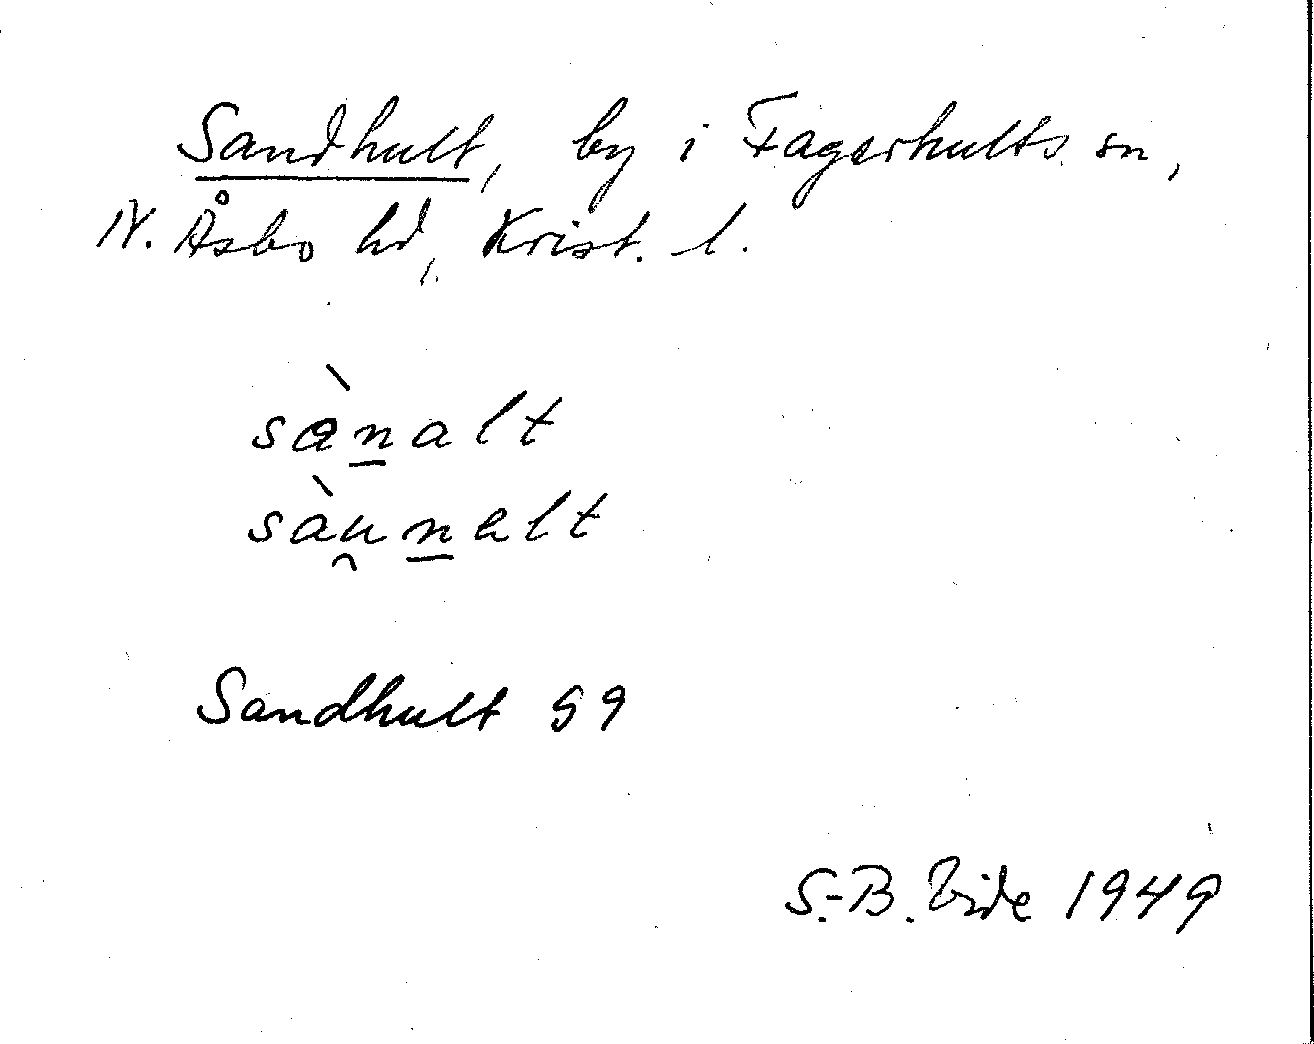 Sandhult, by i Fagerhults sn,
N. Åsbo hd, Krist. l.
sàn̲alt
sàu̯n̲alt
Sandhult 59
S.-B. Vide 1949